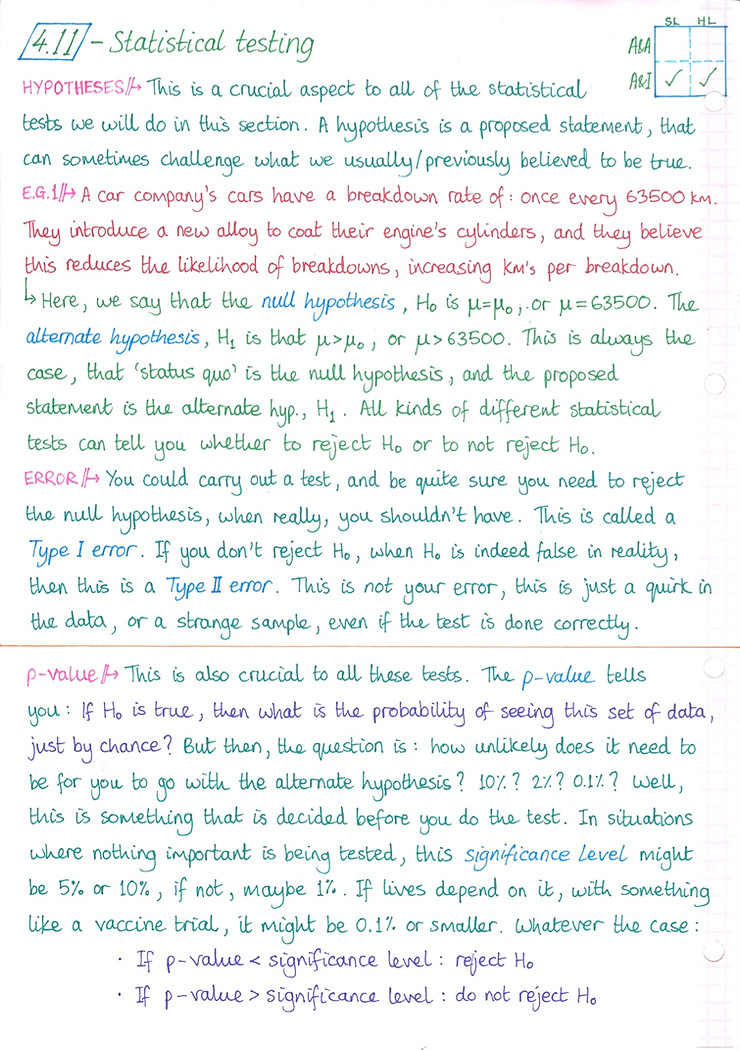 4.11 - Statistical testing
SL HL
A&A
A&I ✓ ✓
HYPOTHESES// → This is a crucial aspect to all of the statistical
tests we will do in this section. A hypothesis is a proposed statement, that
can sometimes challenge what we usually/previously believed to be true.
E.G.1// → A car company's cars have a breakdown rate of: once every 63500 km.
They introduce a new alloy to coat their engine's cylinders, and they believe
this reduces the likelihood of breakdowns, increasing km's per breakdown.
↳ Here, we say that the null hypothesis, H₀ is μ=μ₀; or μ=63500. The
alternate hypothesis, H₁ is that μ>μ₀, or μ>63500. This is always the
case, that 'status quo' is the null hypothesis, and the proposed
statement is the alternate hyp., H₁. All kinds of different statistical
tests can tell you whether to reject H₀ or to not reject H₀.
ERROR// → You could carry out a test, and be quite sure you need to reject
the null hypothesis, when really, you shouldn't have. This is called a
Type I error. If you don't reject H₀, when H₀ is indeed false in reality,
then this is a Type II error. This is not your error, this is just a quirk in
the data, or a strange sample, even if the test is done correctly.
p-value// → This is also crucial to all these tests. The p-value tells
you: If H₀ is true, then what is the probability of seeing this set of data,
just by chance? But then, the question is: how unlikely does it need to
be for you to go with the alternate hypothesis? 10%? 2%? 0.1%? Well,
this is something that is decided before you do the test. In situations
where nothing important is being tested, this significance level might
be 5% or 10%, if not, maybe 1%. If lives depend on it, with something
like a vaccine trial, it might be 0.1% or smaller. Whatever the case:
· If p-value < significance level: reject H₀
· If p-value > significance level: do not reject H₀